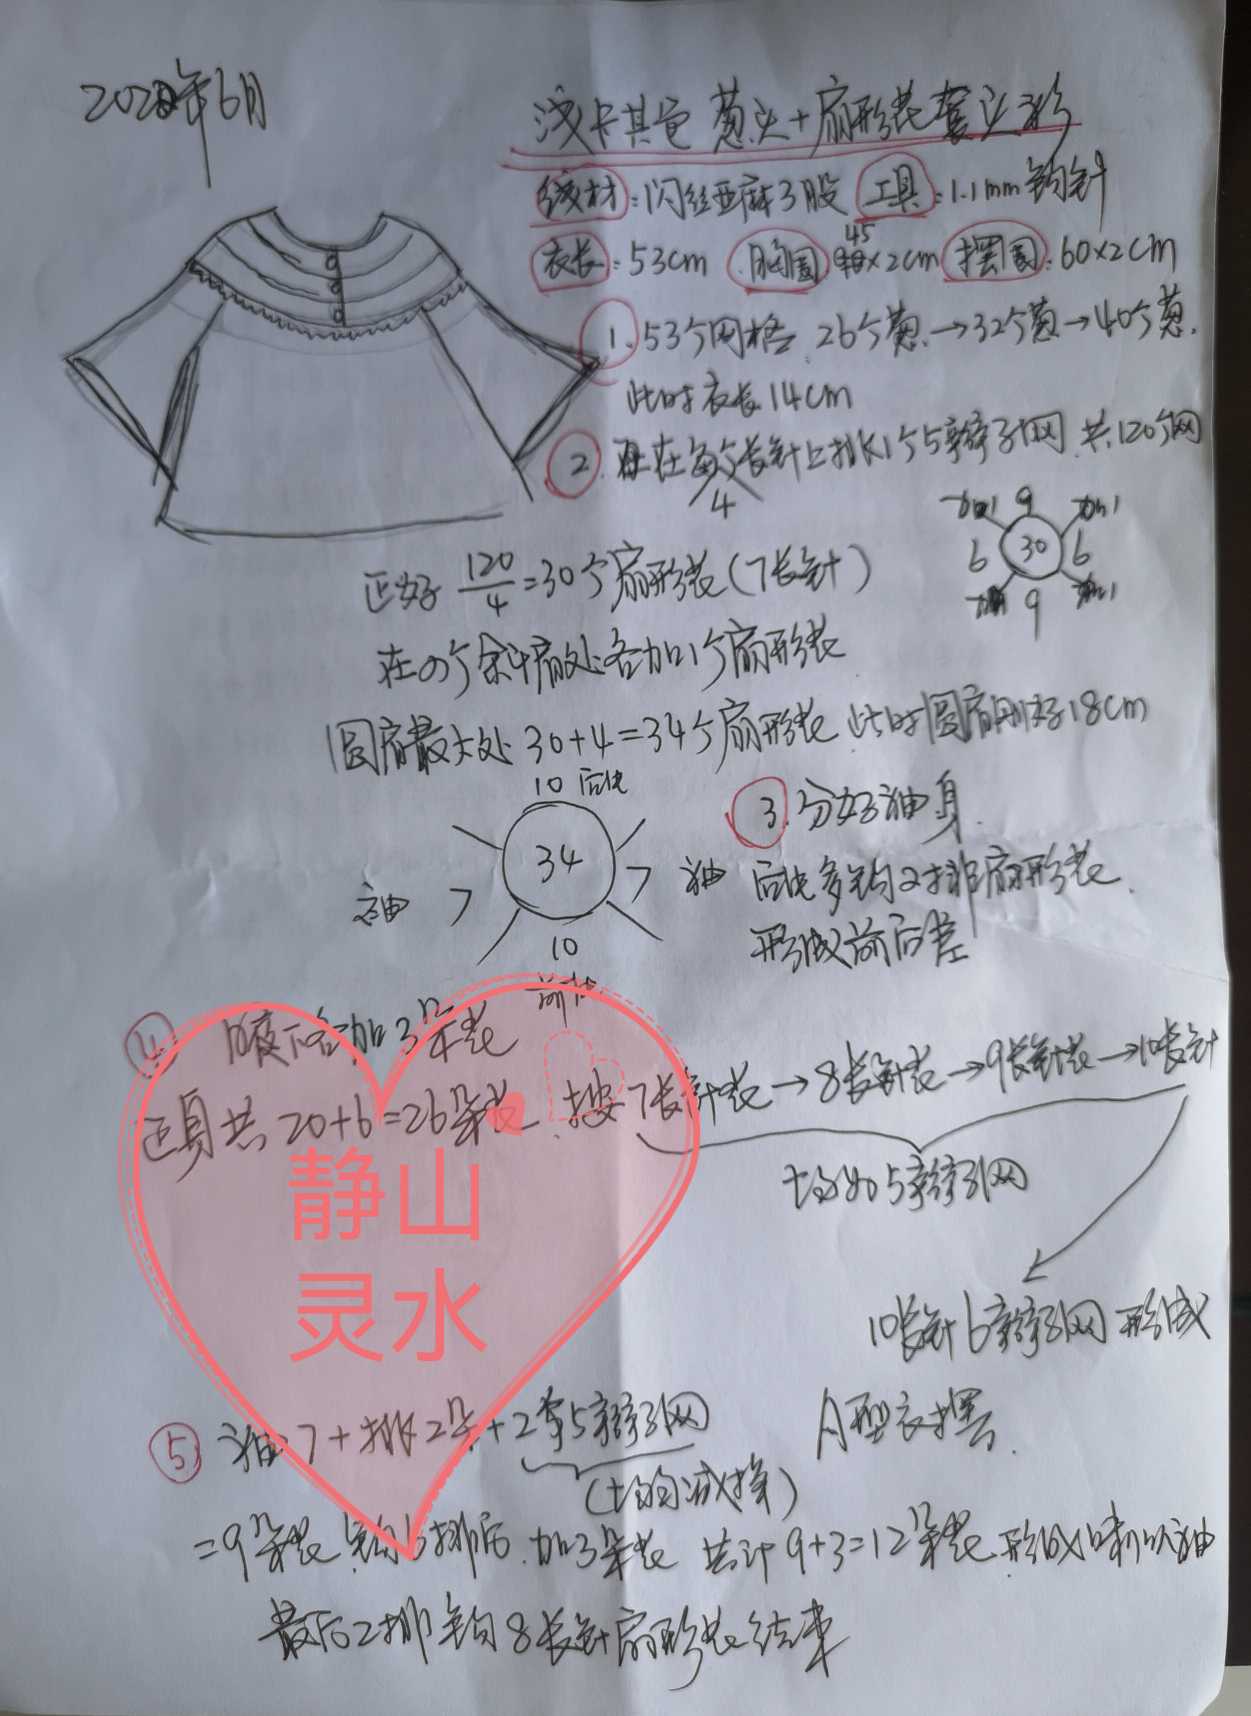 2020年6月
浅卡其色 葱头+扇形花套头衫
线材:闪丝亚麻3股 工具:1.1mm钩针
衣长:53cm 胸围:45×2cm 摆围:60×2cm
1.53个网格.26个葱→32个葱→40个葱.
此时衣长14cm
2.在每个长针上挑1个5辫子网 共120个网
4
正好 120/4=30个扇形花(7长针)
加1 9 加1
6 30 6
加1 9 加1
在4个斜肩处各加1个扇形花
圆肩最大处 30+4=34个扇形花 此时圆肩刚好18cm
10 后片
34
袖 7
7 袖
10
前片
3.分好袖身.
后片多钩2排扇形花.
形成前后差
4 腋下各加3朵花
正身共20+6=26朵花.按7长针花→8长针花→9长针花→10长针
均为5辫子网
10长针6辫子网 形成
A型衣摆.
静山
灵水
5 袖7+挑2朵+2个5辫子网
(均匀减掉)
=9朵花.钩6排后.加3朵花 共计9+3=12朵花.形成喇叭袖
最后2排钩8长针扇形花结束